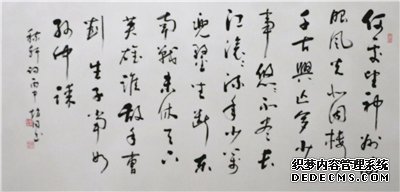 何處望神州滿
眼風光北固樓
千古興亡多少
事悠悠不盡長
江滾滾流年少萬
兜鍪坐斷東
南戰未休天下
英雄誰敵手曹
劉生子當如
孫仲謀
稼軒詞丙申